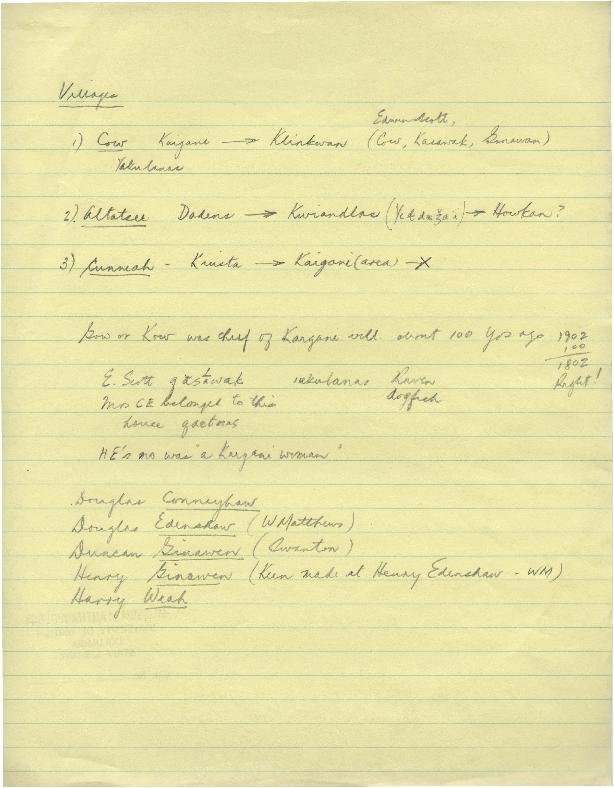 Villages
Edwin Scott,
1) Cow Kaigani → Klinkwan (Cow, Kasawak, Ginawan)
Yakulanas
2) Altatsee Dadens → Kwiandlas → Howkan?
3) Cunneah - Kiusta → Kaigani (area) → X
Gow or Kow was chief of Kaigani vill. about 100 yrs ago 1902
100
1802
Right!
E. Scott qasawak iakulanas Raven
Mrs CE belonged to this dogfish
house qaetnas
HE's mo was "a Kaigani woman"
Douglas Conneyhaw
Douglas Edenshaw (WMatthews)
Duncan Ginawen (Swanton)
Henry Ginawen (Keen made it Henry Edenshaw - WM)
Harry Weah